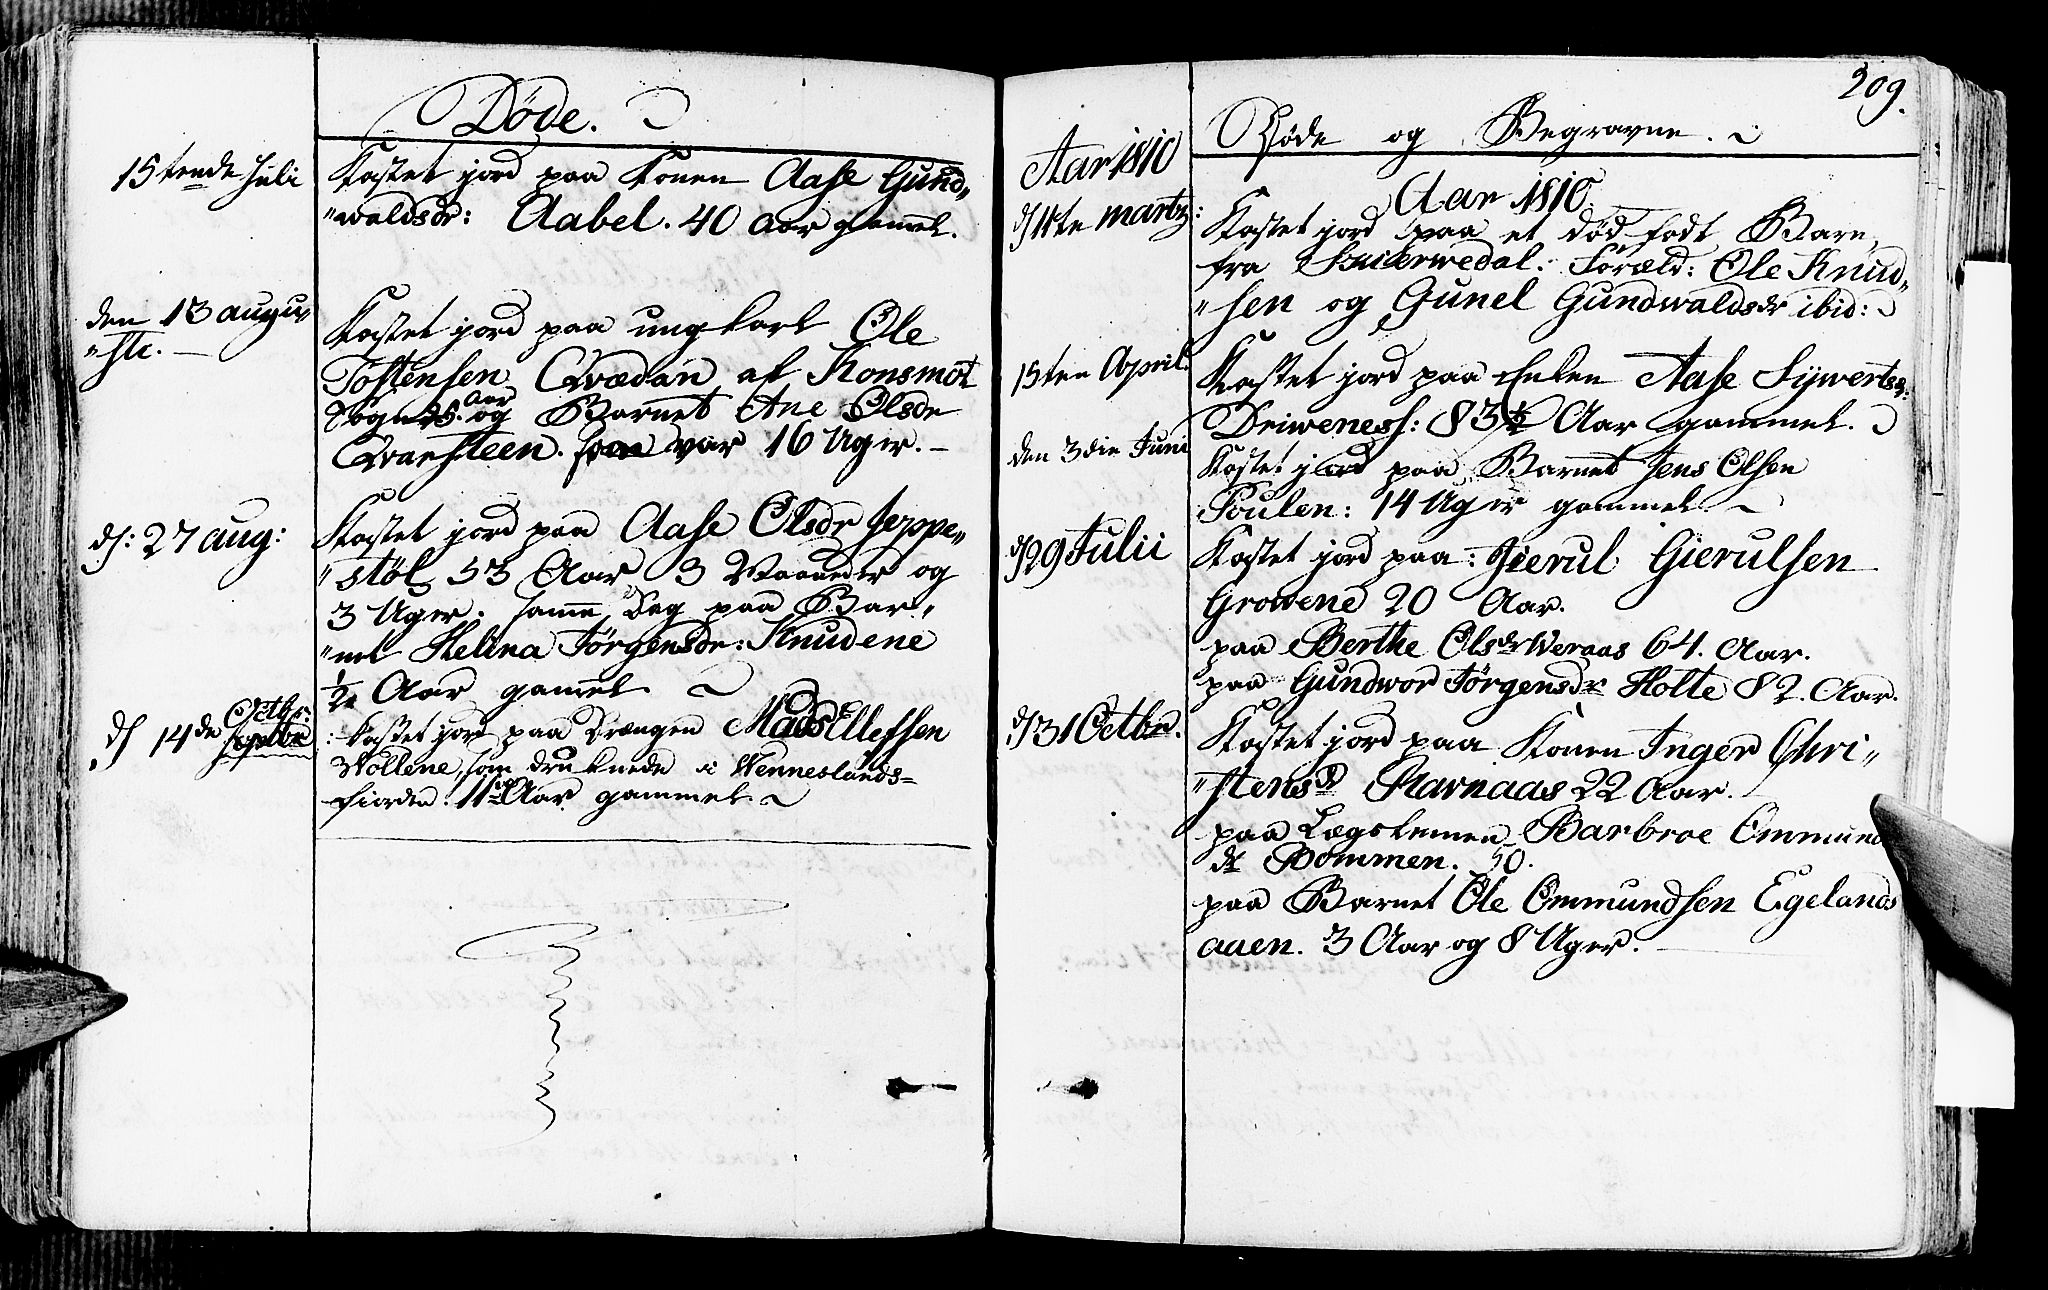 Døde.
15tende Juli
Kastet jord paa Konen Aase Gund„
„waldsdr: Aabel. 40 Aar gamel.
den 13 augu„
„sti. —
Kastet jord paa ungkarl Ole
Tostensen Qvædan af Konsmöt
Sogn 25. Aar og Barnet Ane Olsdr
Qvarsteen. som var 16 Uger. —
d: 27 aug:
Kastet jord paa Aase Olsdr Jeppe„
„støl 53 Aar 3 Maaneder og
3 Uger. samme Dag paa Bar„
„net Helina Jørgensdr: Knudene
1/2 Aar gamel
d 14de Octbr:
Kastet jord paa Drængen Mads Ellefsen
Mollene, som druknede i Wenneslands=
Fiorden: 11 Aar gammel.
209.
Døde og Begravne.
Aar 1810
Aar 1810.
d 11te martz:
Kastet jord paa et død født Barn,
fra Snierwedal: Foræld: Ole Knud„
„sen og Gunel Gundwaldsdr ibid:
15ten April.
Kastet jord paa Enken Aase Sywertsdr:
Driwenesh: 83 1/2 Aar gammel.
den 3die Juni
Kastet jord paa Barnet Jens Olsen
Foulen: 14 Uger gammel
d 29 Julii
Kastet jord paa: Gierul Gierulsen
Growene 20 Aar.
paa Berthe Olsdr Weraas 64. Aar.
paa Gundwor Jørgensdr Holte 82. Aar.
d 31 Octbr.
Kastet jord paa Konen Inger Chri„
„stensd Ravnaas 22 Aar.
paa Lægslemen Barbroe Ommund
dr Bommen. 50.
paa Barnet Ole Ommundsen Egelands
aaen. 3 Aar og 8 Uger.